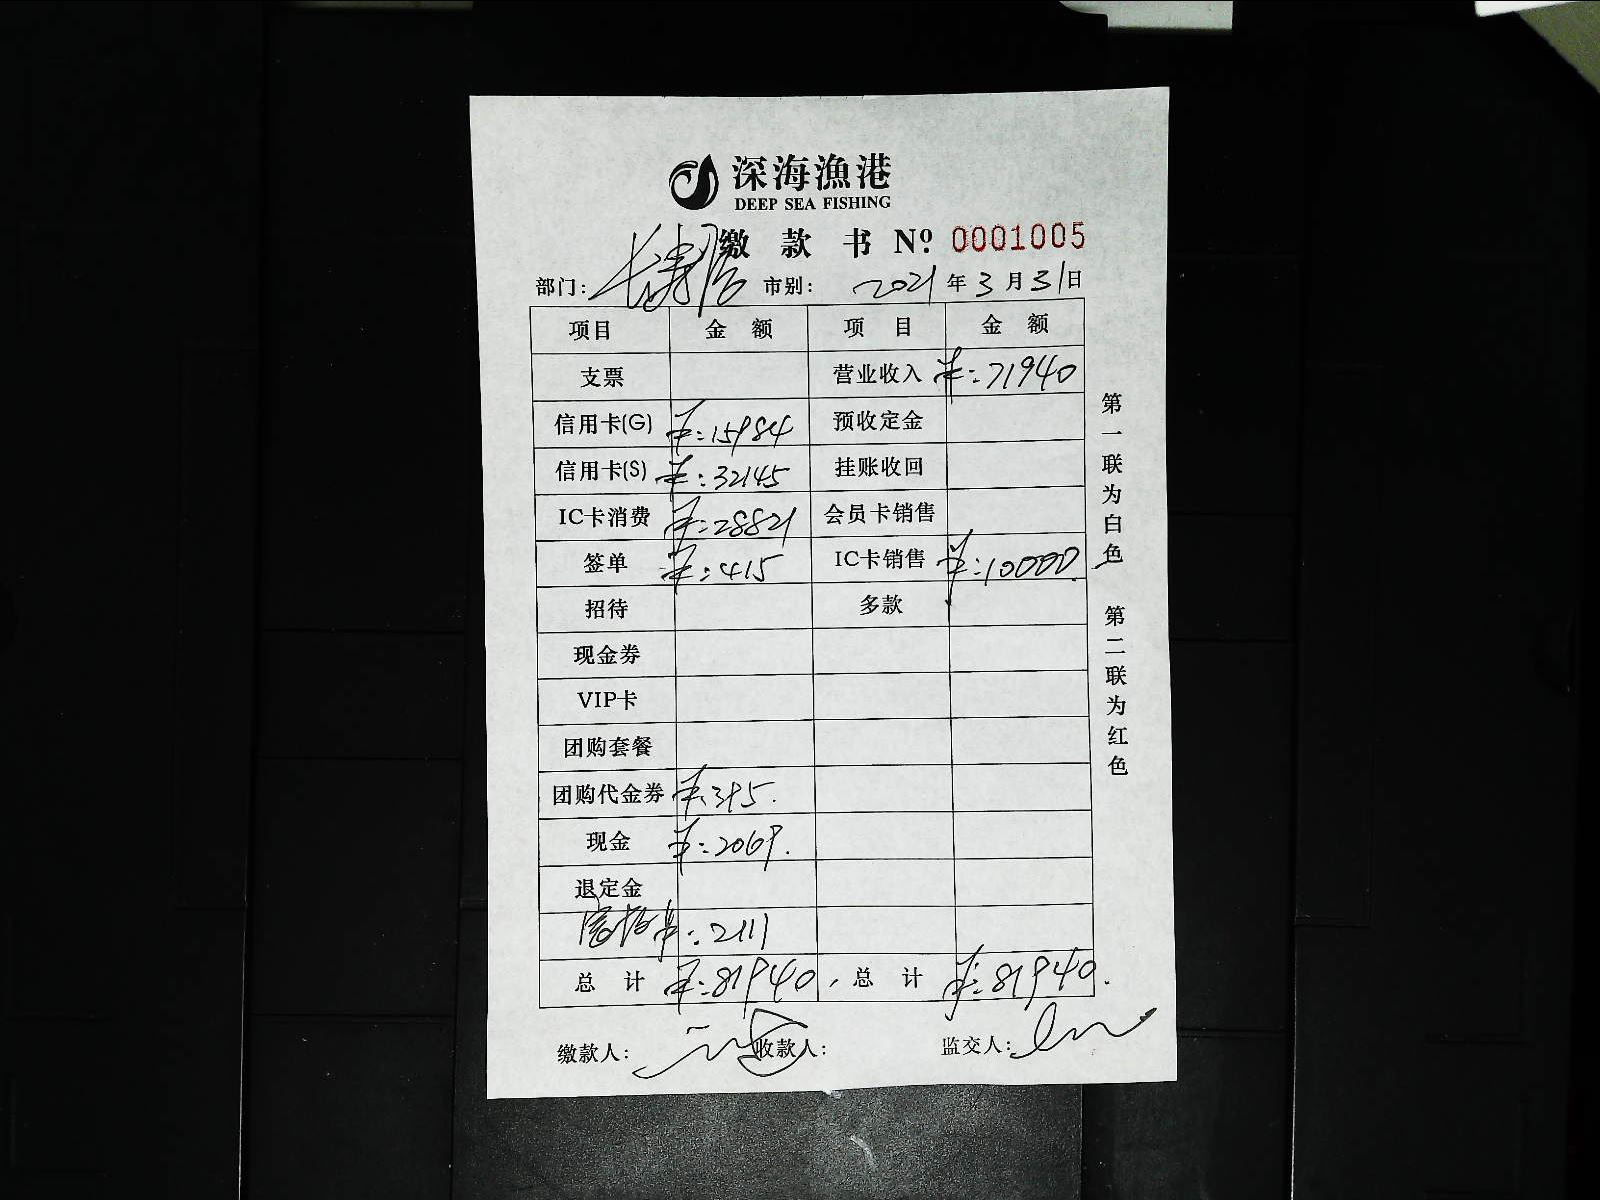 深海漁港
DEEP SEA FISHING
缴款书 Nº: 0001005
部门: 市别: 2021年3月31日
项目 金额 项目 金额
支票 营业收入 ¥:71940
信用卡(G) ¥:15984 预收定金
信用卡(S) ¥:32145 挂账收回
IC卡消费 ¥:28821 会员卡销售
签单 ¥:415 IC卡销售 ¥:10000
招待 多款
现金券
VIP卡
团购套餐
团购代金券 ¥:395.
现金 ¥:2069.
退定金
:2111
总计 ¥:81940 总计 ¥:81940.
缴款人: 收款人: 监交人:
第一联为白色 第二联为红色